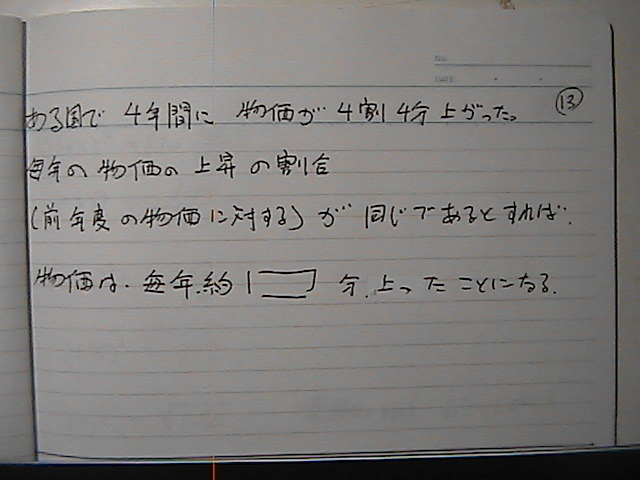 No.
DATE
⑬
ある国で 4年間に 物価が 4割4分 上がった。
毎年の物価の上昇の割合
(前年度の物価に対する)が 同じであるとすれば、
物価は、毎年、約 □ 分、上ったことになる。